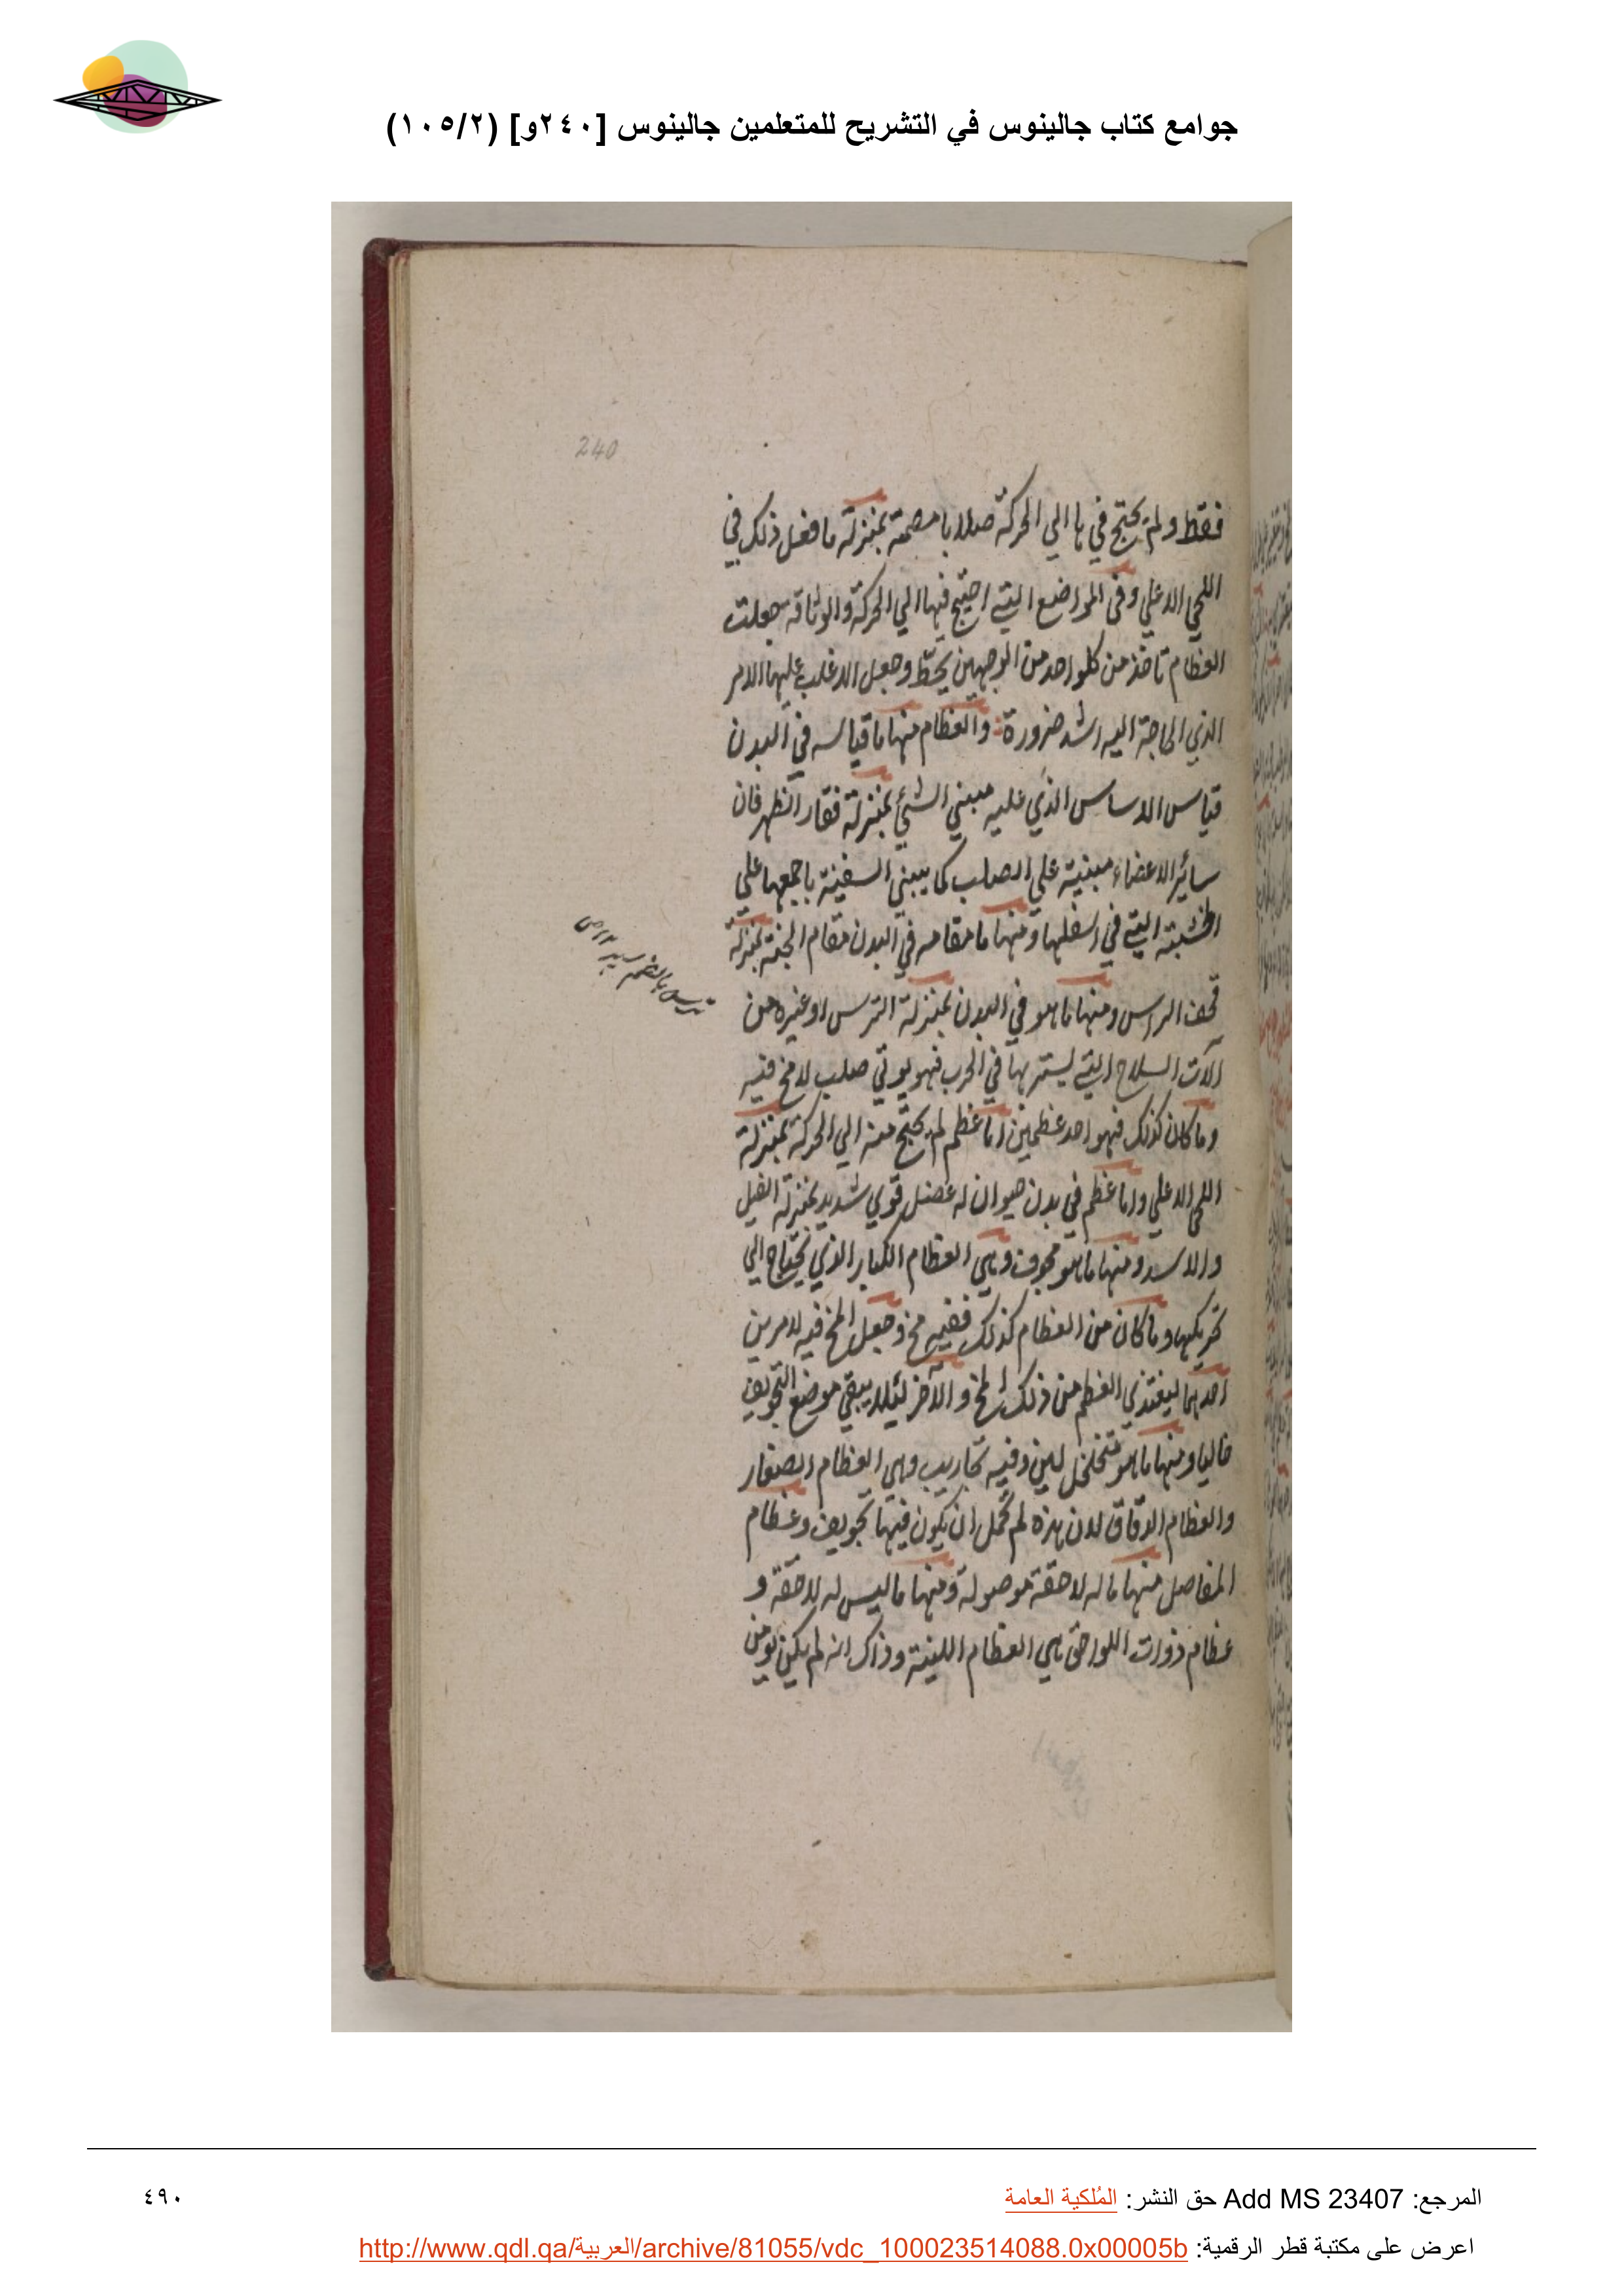 جوامع كتاب جالينوس في التشريح للمتعلمين جالينوس [٢٤٠و] (١٠٥/٢)
240
فقط ولم يحتج في ها الي الحركة صلابا مصمتة بمنزلة ما فعل ذلك في
اللحي الاعلي وفي المواضع التي احتيج فيها الي الحركة والوثاقة جعلت
العظام تاخذ من كلواحد من الوجهين بحظ وجعل الاغلب عليها الامر
الذي الحاجة اليه اشد ضرورة والعظام منها ما قياسه في البدن
قياس الاساس الذي عليه مبني الشئ بمنزلة فقار الظهر فان
سائر الاعضاء مبنية علي الصلب كما يبني السفينة باجمعها علي
الخشبة التي في اسفلها ومنها ما مقامه في البدن مقام الجنة بمنزلة
قحف الراس ومنها ما هو في البدن بمنزلة الترس او غيره من
آلات السلاح التي يستتر بها في الحرب فهو يوتي صلب لا مخ فيه
وما كان كذلك فهو احد عظمين اما عظم لم يحتج منه الي الحركة بمنزلة
اللحي الاعلي واما عظم في بدن حيوان له عضل قوي شديد بمنزلة الفيل
والاسد ومنها ما هو مجوف وهي العظام الكبار الذي تحتاج الي
تحريكها وما كان من العظام كذلك ففيه مخ وجعل المخ فيه لامرين
احدهما ليغتذي العظم من ذلك المخ والآخر لئلا يبقي موضع التجويف
خاليا ومنها ما هو متخلخل لين وفيه تجاريب وهي العظام الصغار
والعظام الدقاق لان هذه لم تحمل ان يكون فيها تجويف وعظام
المفاصل منها ما له لاحقة موصولة ومنها ما ليس له لاحقة و
عظام ذوات اللواحق هي العظام اللينة وذاك انه لم يكن يومن
ترس بالضم سپر
المرجع: Add MS 23407 حق النشر: المُلكية العامة
٤٩٠
اعرض على مكتبة قطر الرقمية: http://www.qdl.qa/العربية/archive/81055/vdc_100023514088.0x00005b